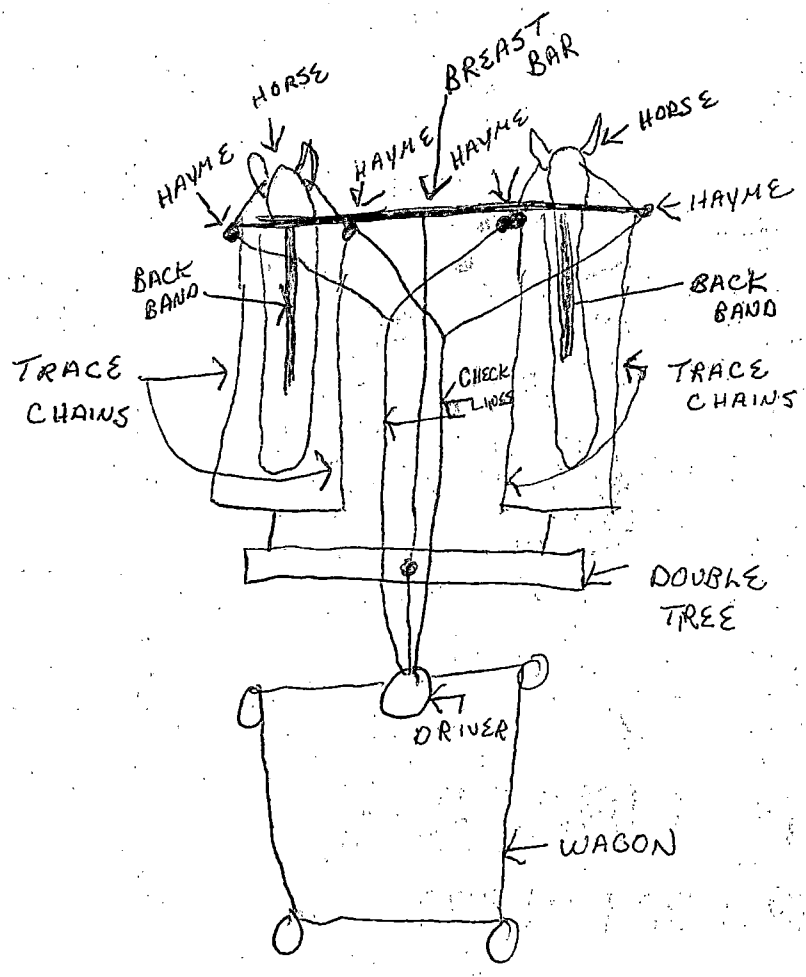 BREAST
BAR
HORSE
HORSE
HAYME
HAYME
HAYME
HAYME
BACK
BAND
BACK
BAND
TRACE
CHAINS
CHECK
LINES
TRACE
CHAINS
DOUBLE
TREE
DRIVER
WAGON